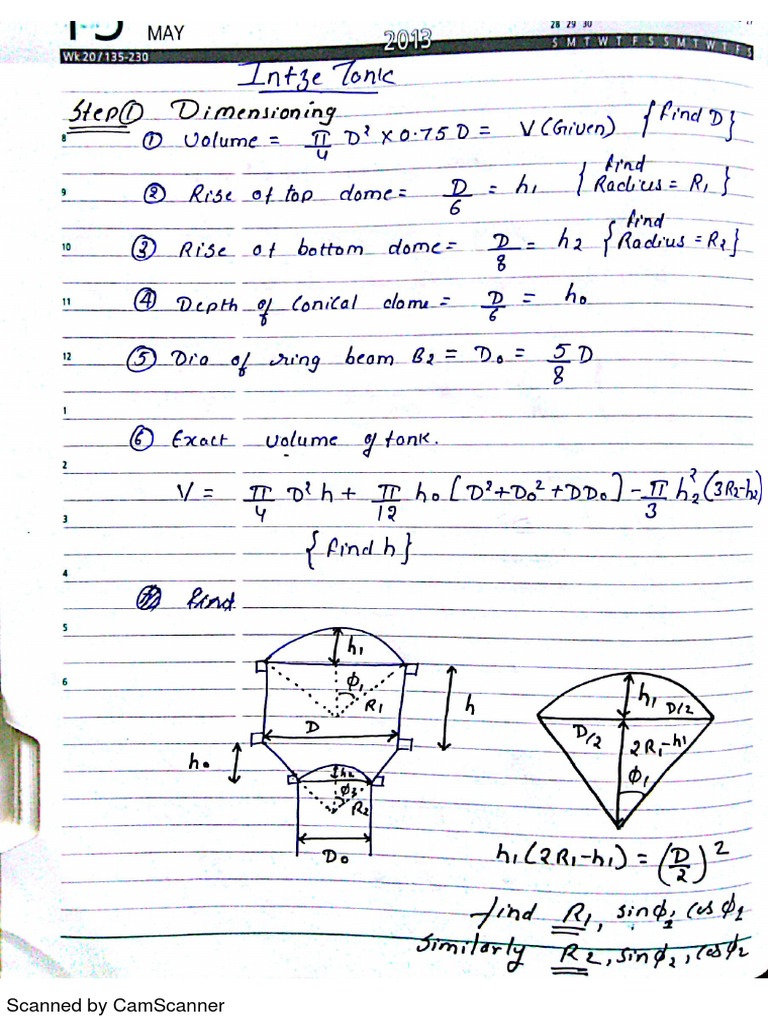 15 MAY
28 29 30
2013
S M T W T F S S M T W T F S
Wk 20 / 135-230
Intze Tank
Step① Dimensioning
8 ① Volume = π/4 D² × 0.75D = V (Given) {find D}
9 ② Rise of top dome = D/6 = h₁ {find Radius = R₁}
10 ③ Rise of bottom dome = D/8 = h₂ {find Radius = R₂}
11 ④ Depth of Conical dome = D/6 = h₀
12 ⑤ Dia of ring beam B₂ = D₀ = 5/8 D
1
⑥ Exact volume of tank.
2
V = π/4 D² h + π/12 h₀ [D² + D₀² + DD₀] - π/3 h₂² (3R₂-h₂)
3
{find h}
4
find
5
h₁
6
φ₁
R₁
h
D
h₀
h₂
φ₂
R₂
D₀
h₁
D/2
D/2
2R₁-h₁
φ₁
h₁(2R₁-h₁) = (D/2)²
find R₁, sinφ₁, cosφ₁
Similarly R₂, sinφ₂, cosφ₂
Scanned by CamScanner